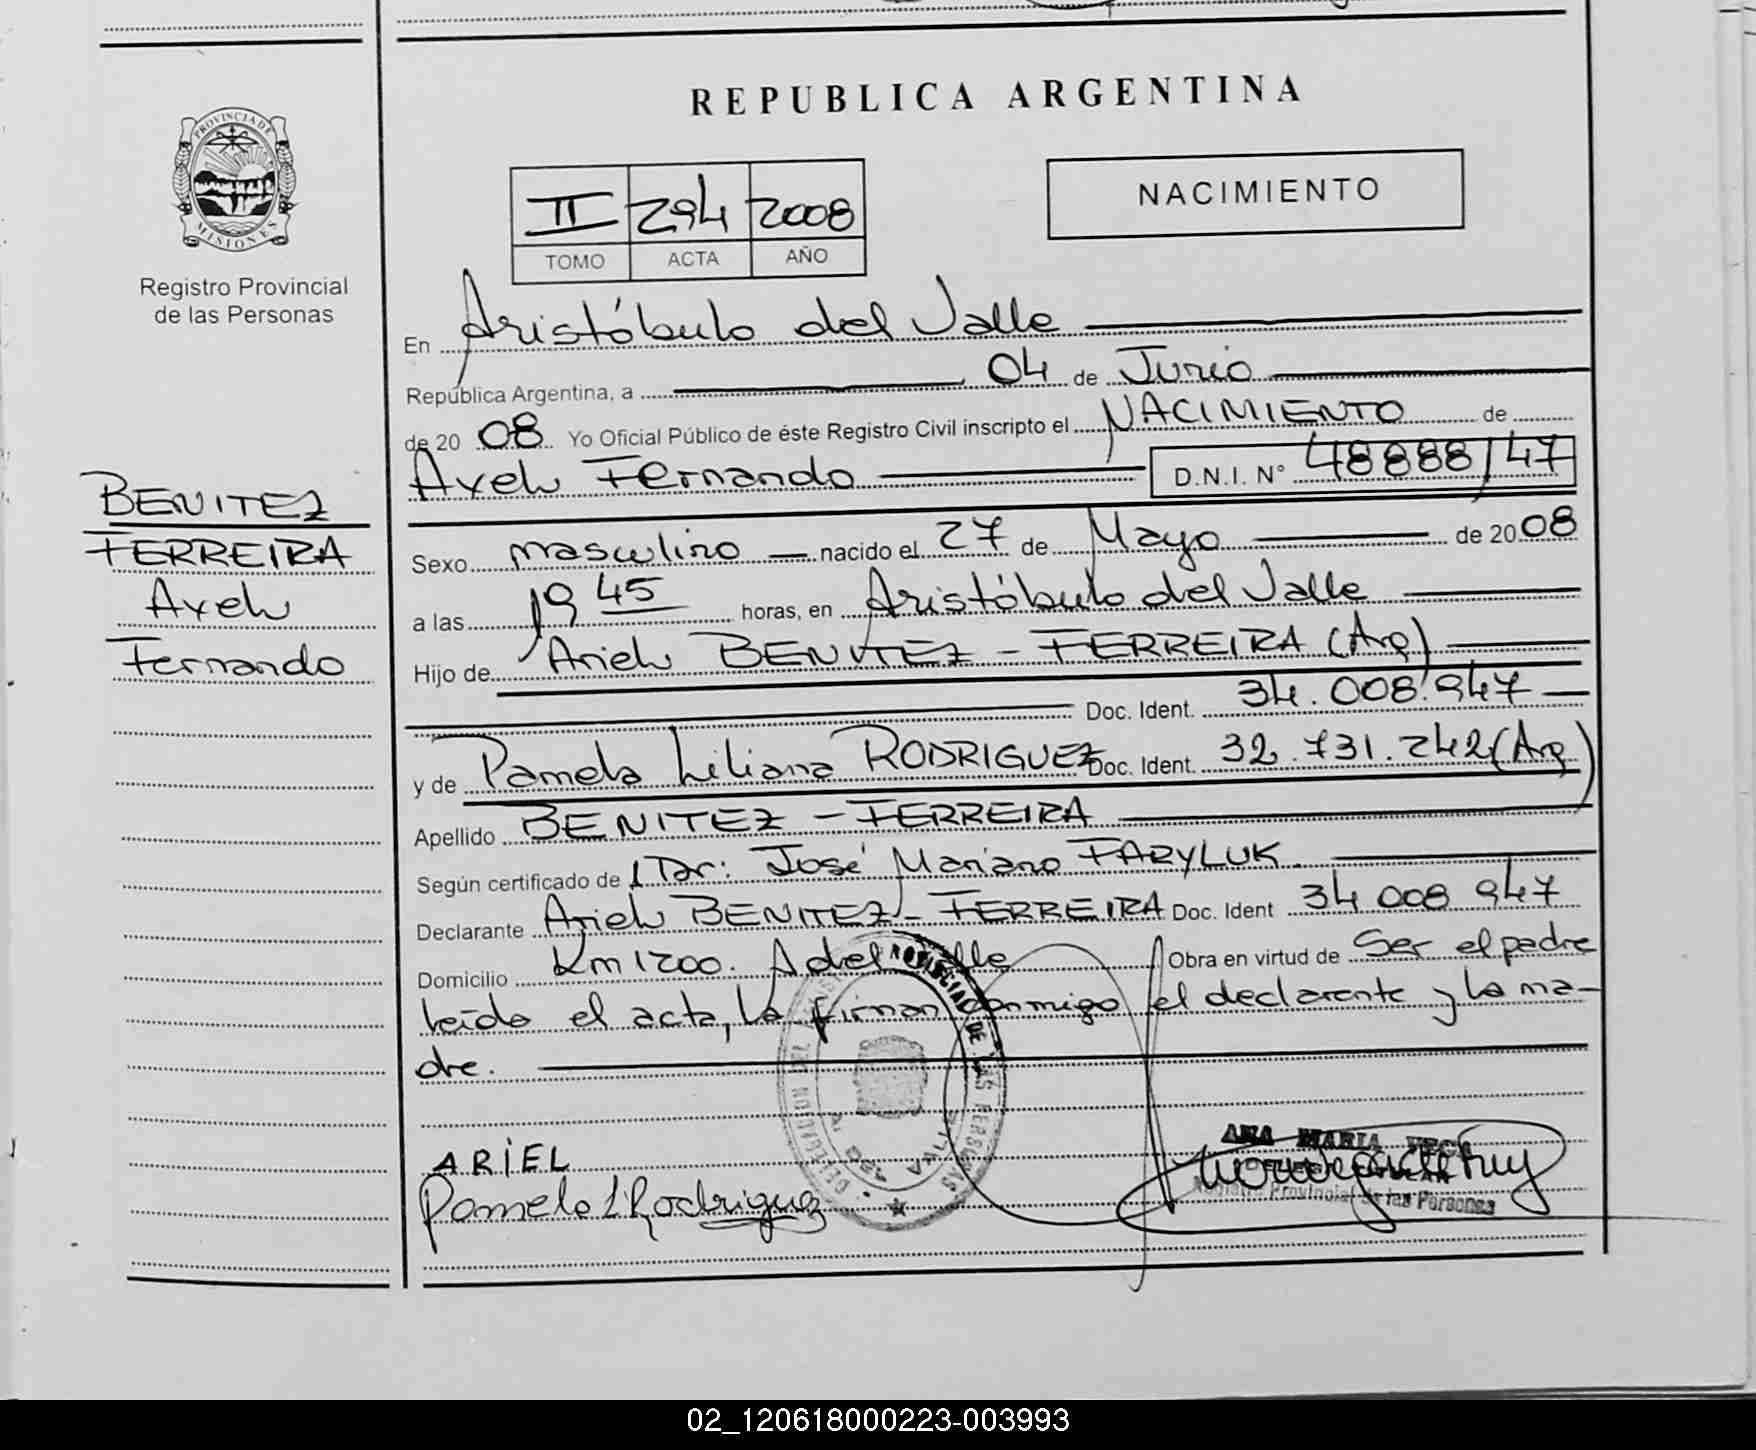 REPUBLICA ARGENTINA
PROVINCIA DE
MISIONES
Registro Provincial
de las Personas
NACIMIENTO
II 294 2008
TOMO ACTA AÑO
En Aristóbulo del Valle
República Argentina, a 04 de Junio
de 20 08 Yo Oficial Público de éste Registro Civil inscripto el NACIMIENTO de
Axel Fernando D.N.I. N° 48888147
BENITEZ
FERREIRA
Axel
Fernando
Sexo masculino nacido el 27 de Mayo de 20 08
a las 19 45 horas, en Aristóbulo del Valle
Hijo de Ariel BENITEZ - FERREIRA (Arg)
Doc. Ident. 34.008.947
y de Pamela Liliana RODRIGUEZ Doc. Ident. 32.731.242 (Arg)
Apellido BENITEZ - FERREIRA
Según certificado de l Dr: José Mariano FARYLUK
Declarante Ariel BENITEZ - FERREIRA Doc. Ident 34 008 947
Domicilio Km 1200. A del Valle Obra en virtud de Ser el padre
leída el acta, la firman conmigo el declarante y la ma-
dre.
ARIEL
Pamela L Rodriguez
ANA MARIA
Registro Provincial de las Personas
02_120618000223-003993